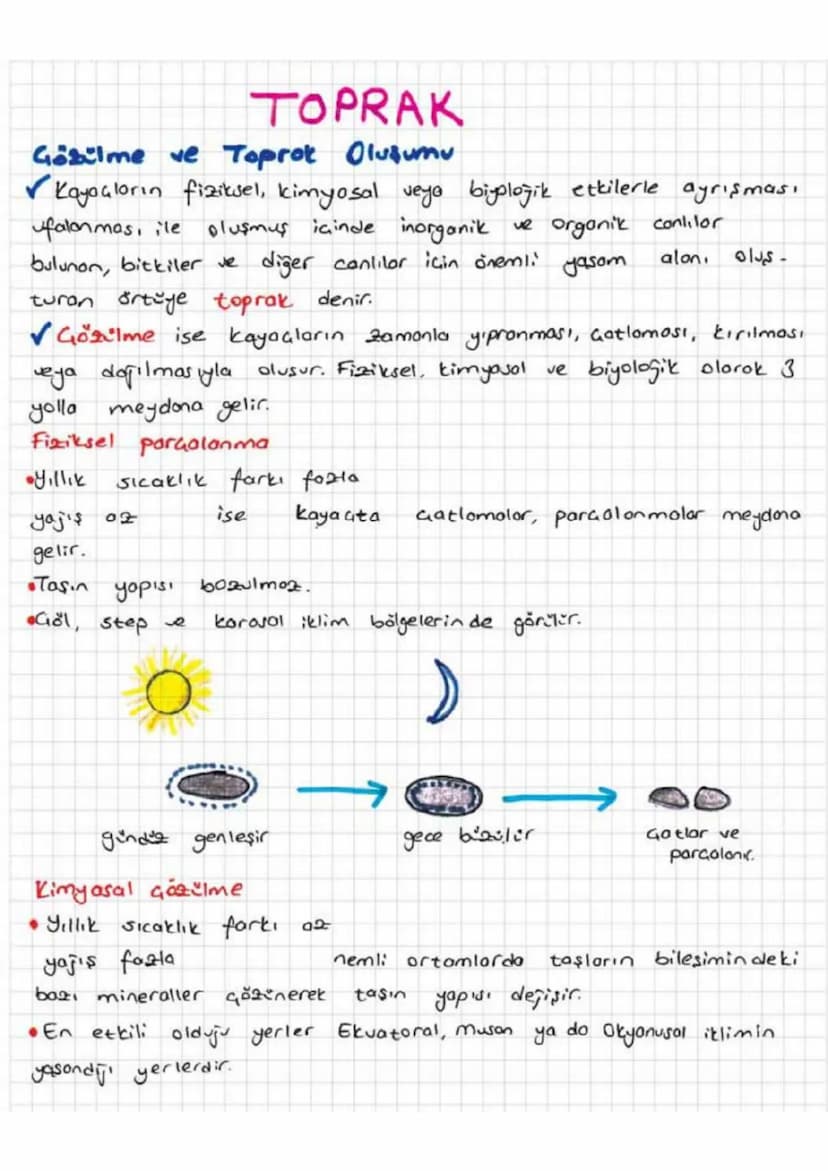 TOPRAK
Çözülme ve Toprak Oluşumu
✓ Kayaçların fiziksel, kimyasal veya biyolojik etkilerle ayrışması
ufalanması ile oluşmuş içinde inorganik ve organik canlılar
bulunan, bitkiler ve diğer canlılar için önemli yaşam alanı oluş-
turan örtüye toprak denir.
✓ Çözülme ise kayaçların zamanla yıpranması, çatlaması, kırılması
veya dağılmasıyla oluşur. Fiziksel, kimyasal ve biyolojik olarak 3
yolla meydana gelir.
Fiziksel parçalanma
•Yıllık sıcaklık farkı fazla
yağış az ise kayaçta çatlamalar, parçalanmalar meydana
gelir.
•Taşın yapısı bozulmaz.
•Çöl, step ve karasal iklim bölgelerinde görülür.
gündüz genleşir
gece büzülür
çatlar ve
parçalanır.
Kimyasal çözülme
• Yıllık sıcaklık farkı az
yağış fazla nemli ortamlarda taşların bileşimindeki
bazı mineraller çözünerek taşın yapısı değişir.
• En etkili olduğu yerler Ekvatoral, Muson ya da Okyanusal iklimin
yaşandığı yerlerdir.